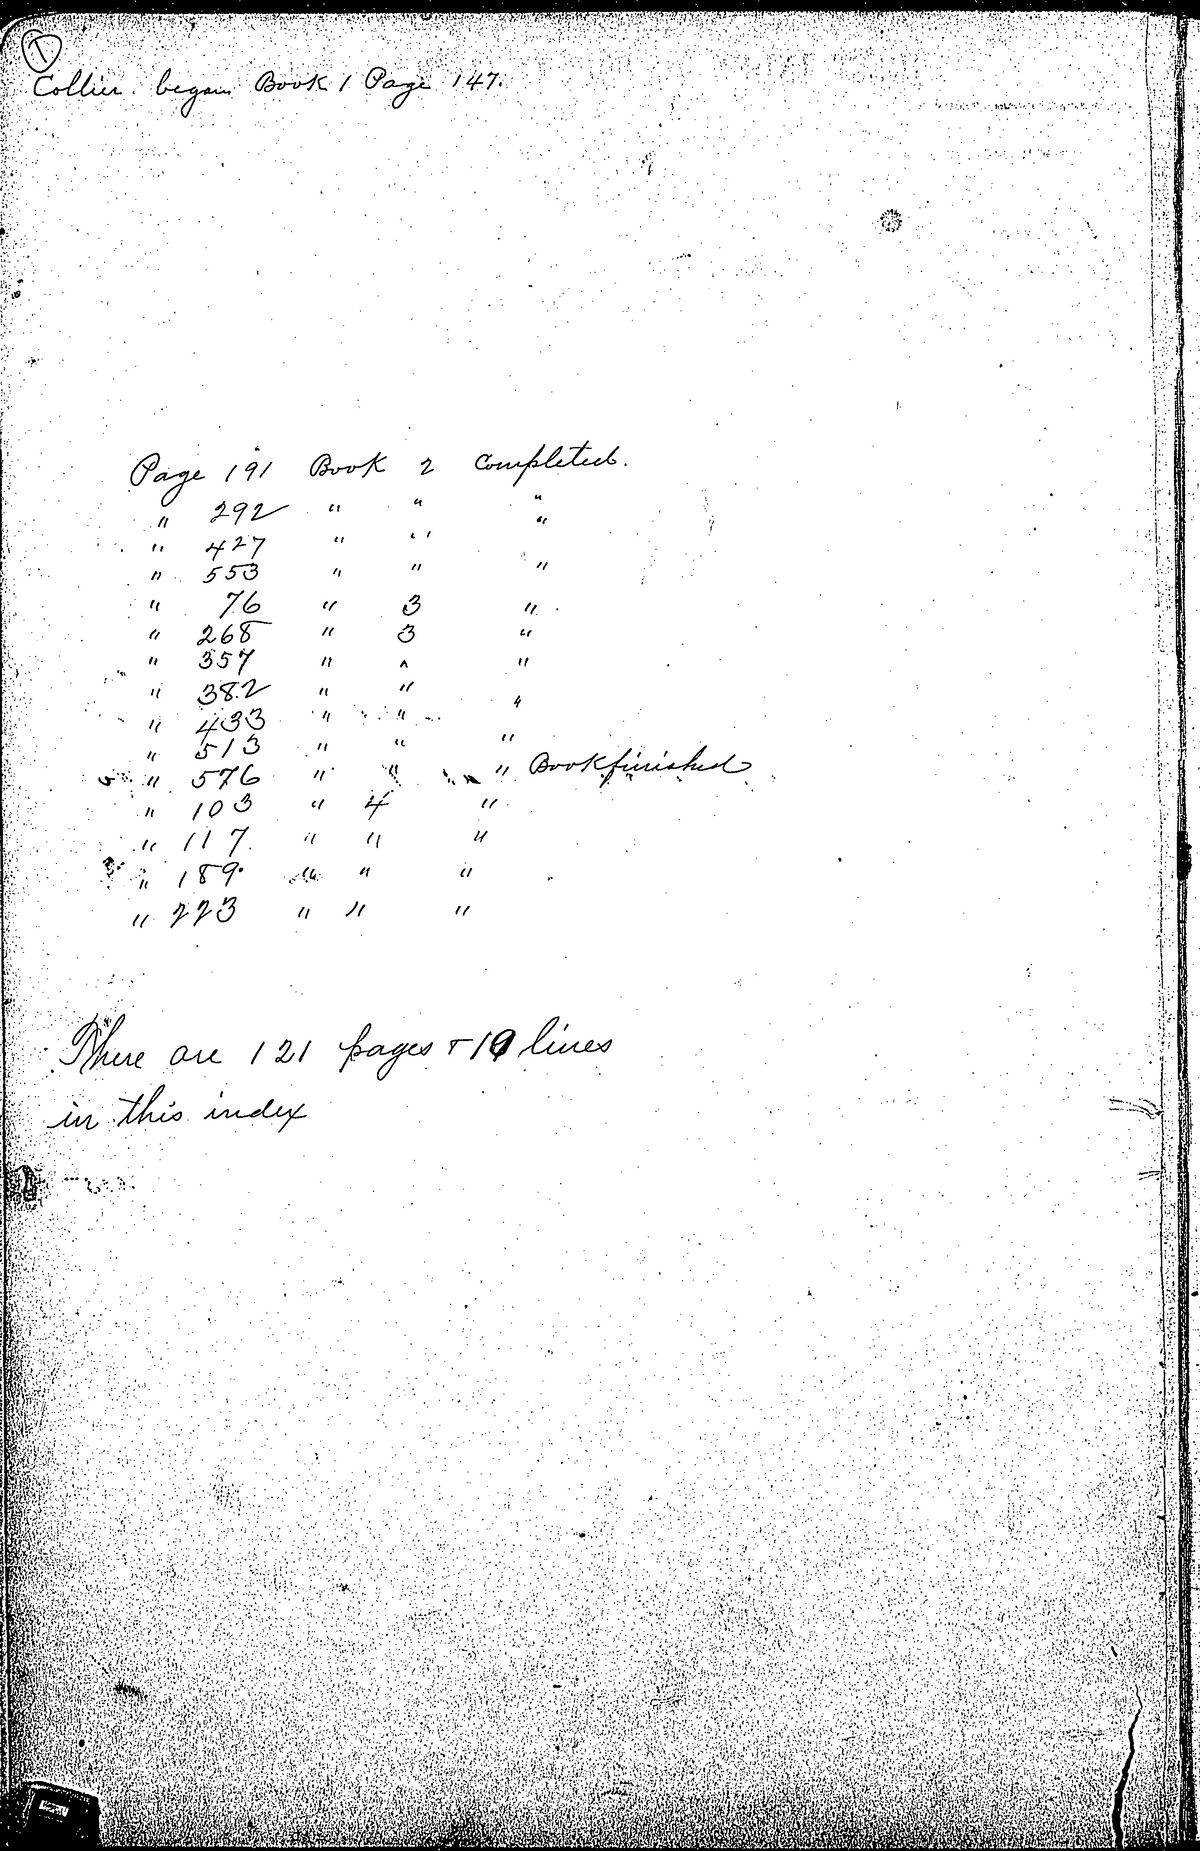 1
Collier began Book 1 Page 147.
Page 191 Book 2 Completed.
" 292 " " "
" 427 " " "
" 553 " " "
" 76 " 3 "
" 268 " 3 "
" 357 " " "
" 382 " " "
" 433 " " "
" 513 " " "
" 576 " " " Book finished
" 103 " 4 "
" 117 " " "
" 189 " " "
" 223 " " "
There are 121 pages + 19 lines
in this index